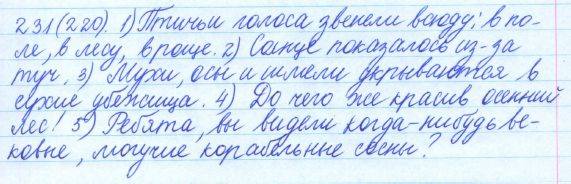 231(220). 1) Птичьи голоса звенели всюду: в по-
ле, в лесу, в роще. 2) Солнце показалось из-за
туч. 3) Мухи, осы и шмели укрываются в
сухие убежища. 4) До чего же красив осенний
лес! 5) Ребята, вы видели когда-нибудь ве-
ковые, могучие корабельные сосны?